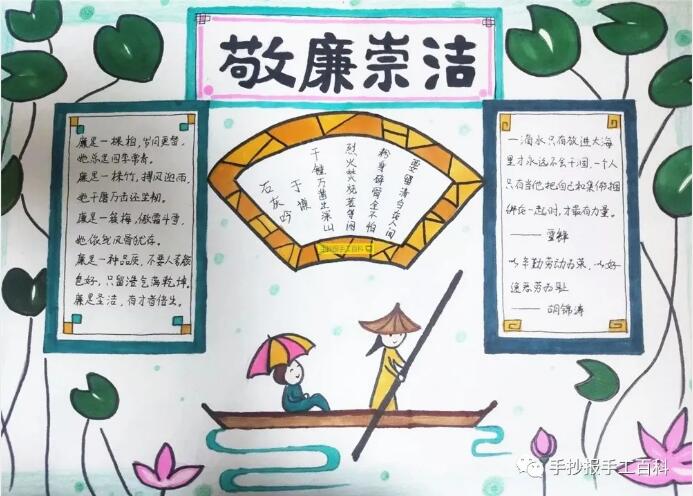 敬廉崇洁
廉是一棵柏,岁月更替,
她总是四季常青。
廉是一株竹,搏风迎雨,
她千磨万击还坚韧。
廉是一簇梅,傲霜斗雪,
她依然风骨犹存。
廉是一种品质,不要人夸颜
色好,只留清气满乾坤。
廉是圣洁,有才者倍生。
石灰吟
于谦
千锤万凿出深山
烈火焚烧若等闲
粉身碎骨全不怕
要留清白在人间
手抄报手工百科
一滴水只有放进大海
里才永远不会干涸,一个人
只有当他把自己和集体拥
拼在一起时,才最有力量。
——雷锋
以辛勤劳动为荣,以好
逸恶劳为耻
——胡锦涛
手抄报手工百科